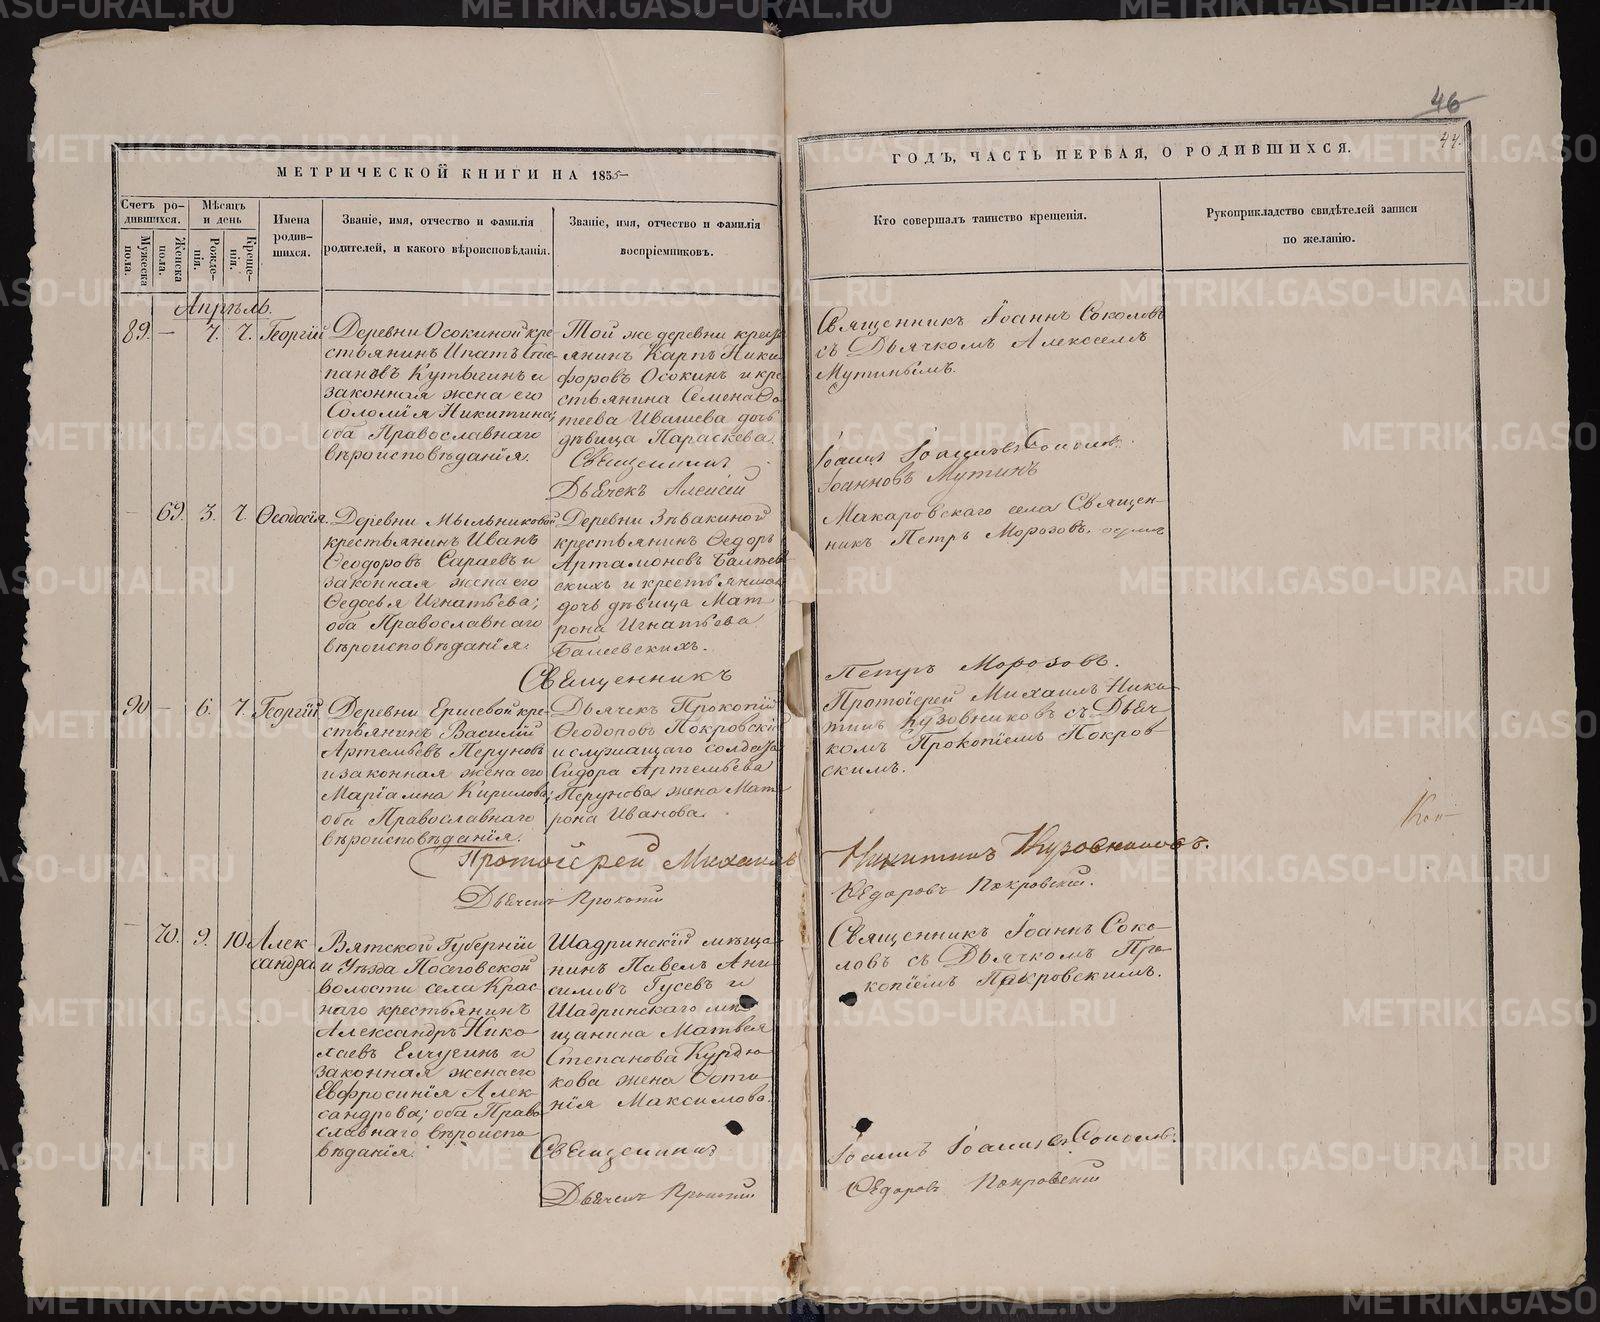 46
44.
МЕТРИЧЕСКОЙ КНИГИ НА 1855
ГОДЪ, ЧАСТЬ ПЕРВАЯ, О РОДИВШИХСЯ.
Счетъ ро-
дившихся.
Мужеска
пола.
Женска
пола.
Мѣсяцъ
и день
Рожде-
нія.
Креще-
нія.
Имена
родив-
шихся.
Званіе, имя, отчество и фамилія
родителей, и какого вѣроисповѣданія.
Званіе, имя, отчество и фамилія
воспріемниковъ.
Кто совершалъ таинство крещенія.
Рукоприкладство свидѣтелей записи
по желанію.
Апрѣль.
89. — 7. 7. Георгій
Деревни Осокиной кре-
стьянинъ Ипатъ Сте-
пановъ Кутыгинъ и
законная жена его
Соломія Никитина;
оба Православнаго
вѣроисповѣданія.
Той же деревни кресть
янинъ Карпъ Ники
форовъ Осокинъ и кре
стьянина Семена Фо
теева Ивашева дочь
дѣвица Параскева.
Священникъ Іоаннъ Соколовъ
съ Дьячкомъ Алексеемъ
Мутинымъ.
Священникъ Іоаннъ Іоанновъ Соколовъ.
Дьячекъ Алексій Іоанновъ Мутинъ
— 69. 3. 7. Ѳеодосія.
Деревни Мыльниковой
крестьянинъ Иванъ
Ѳеодоровъ Сараевъ и
законная жена его
Ѳедосья Игнатьева;
оба Православнаго
вѣроисповѣданія.
Деревни Зѣвакиной
крестьянинъ Ѳедоръ
Артамоновъ Балѣев
скихъ и крестьянина
дочь дѣвица Мат
рона Игнатьева
Балеевскихъ.
Макаровскаго села Священ-
никъ Петръ Морозовъ. один
Священникъ Петръ Морозовъ.
90 — 6. 7. Георгій
Деревни Ершевой кре-
стьянинъ Василій
Артемьевъ Перуновъ
и законная жена его
Маріамна Кирилова;
оба Православнаго
вѣроисповѣданія.
Дьячекъ Прокопій
Ѳеодоровъ Покровскій
и служащаго солдата
Сидора Артемьева
Перунова жена Мат
рона Иванова.
Протоіерей Михаилъ Ники-
тинъ Кузовниковъ съ Дьяч-
комъ Прокопіемъ Покров-
скимъ.
Кон
Протоіерей Михаилъ Никитинъ Кузовниковъ.
Дьячекъ Прокопій Ѳедоровъ Покровскій.
— 70. 9. 10. Алек
сандра
Вятской Губерніи
и Уѣзда Посеговской
волости села Крас-
наго крестьянинъ
Александръ Нико-
лаевъ Елчугинъ и
законная жена его
Евфросинія Алек-
сандрова; оба Право
славнаго вѣроиспо-
вѣданія.
Шадринскій мѣща-
нинъ Павелъ Ани
симовъ Гусевъ и
Шадринскаго мѣ
щанина Матвея
Степанова Курдю-
кова жена Фоти-
нія Максимова.
Священникъ Іоаннъ Соко-
ловъ съ Дьячкомъ Про-
копіемъ Покровскимъ.
Священникъ Іоаннъ Іоанновъ Соколовъ.
Дьячекъ Прокопій Ѳедоровъ Покровскій
METRIKI.GASO-URAL.RU